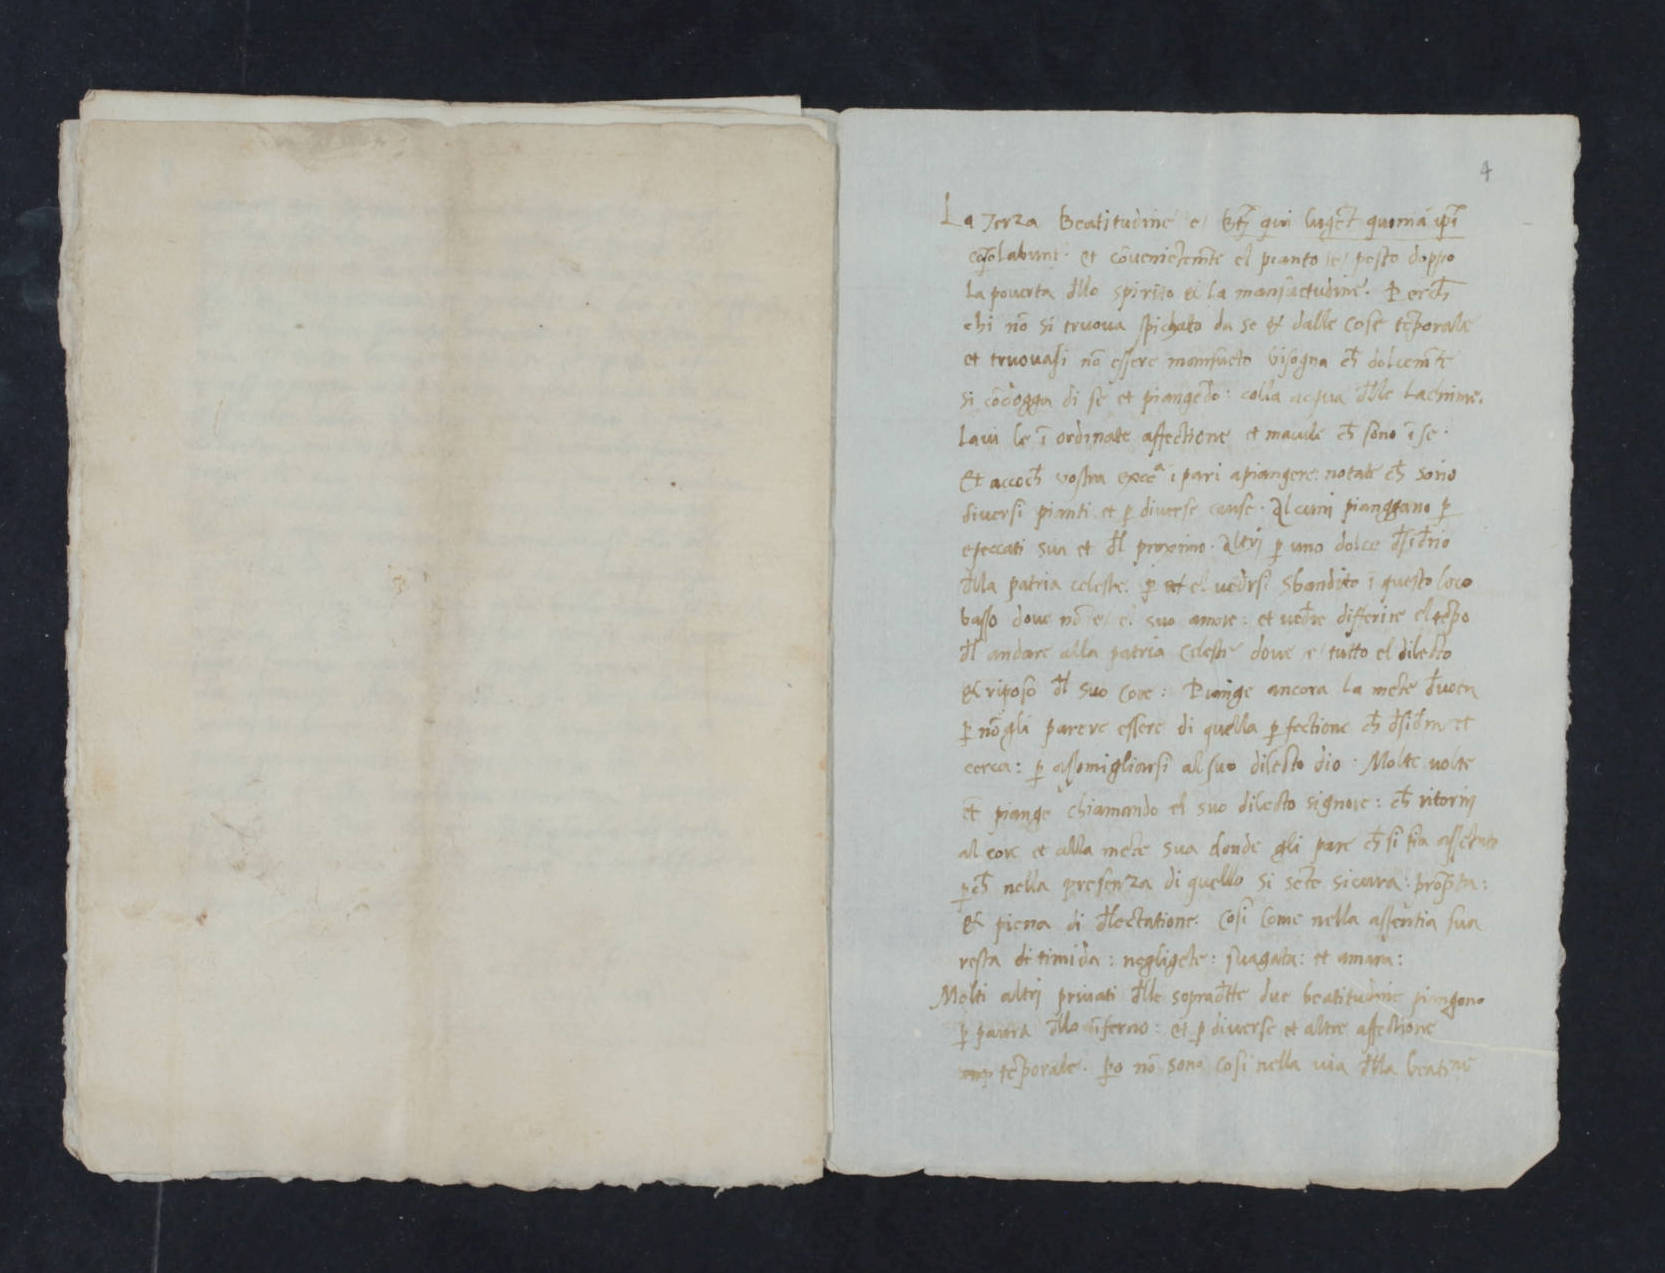 4
La Terza Beatitudine e/ bt̄j qui lugēt quoniā ip̄i
cōsolabunt. et cōueniētem̄te el pianto /e/ posto doppo
la pouerta d̄llo spirito & la mansuetudine. Perch̄
chi nō si truoua spichato da se & dalle cose tēporale
et truouasi nō essere mansueto bisogna ch̄ dolcem̄te
si cōdogga di se et piangēdo: colla acqua d̄lle Lachrime.
Laui le ī ordinate affectione et macule ch̄ sono ī se.
Et accoch̄ vostra excēa ipari apiangere: notate ch̄ sono
diuersi pianti et p̱ diuerse cause. Alcunj pianggano p̱
epeccati sua et d̄l proximo. Altrj p̱ uno dolce d̄sid̄rio
d̄lla patria celeste. p̱ el ued̄rsi sbandito ī questo loco
basso doue nō e/ el suo amore: et ued̄re differire el tēpo
d̄l andare alla patria celeste doue e/ tutto el dilecto
& riposo d̄l suo core: Piange ancora la mēte d̄uota
p̱ nōgli parere essere di quella p̱fectione ch̄ d̄sid̄ra et
cerca: p̱ assomigliarsi al suo dilecto dio. Molte uolte
ēt piange chiamando el suo dilecto signore: ch̄ ritornj
al core et alla mēte sua donde gli pare ch̄ si sia assētato
p̱ch̄ nella presenza di quello si sēte sicura: prōpta:
& piena di d̄lectatione. Cosi come nella assentia sua
resta di timida: negligēte: suagata: et amara:
Molti altrj priuati d̄lle soprad̄tte due beatitudine piangono
p̱ paura d̄llo īferno: et p̱ diuerse et altre affectione
tēporale. p̱o nō sono cosi nella uia d̄lla beatitu